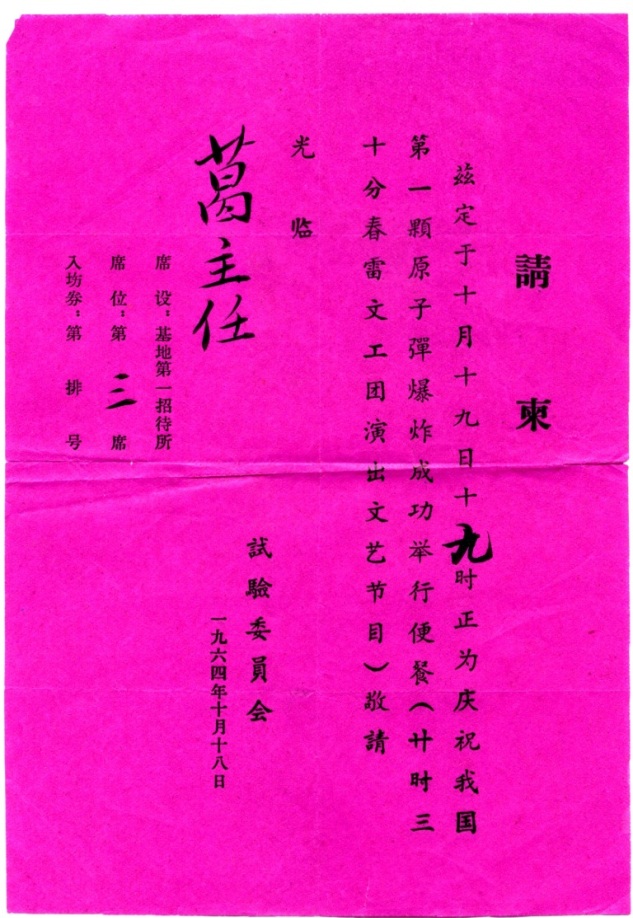 請柬
茲定于十月十九日十九时正为庆祝我国
第一顆原子彈爆炸成功举行便餐（廿时三
十分春雷文工团演出文艺节目）敬請
光临
葛主任
試驗委員会
一九六四年十月十八日
席设：基地第一招待所
席位：第三席
入坊券：第 排 号